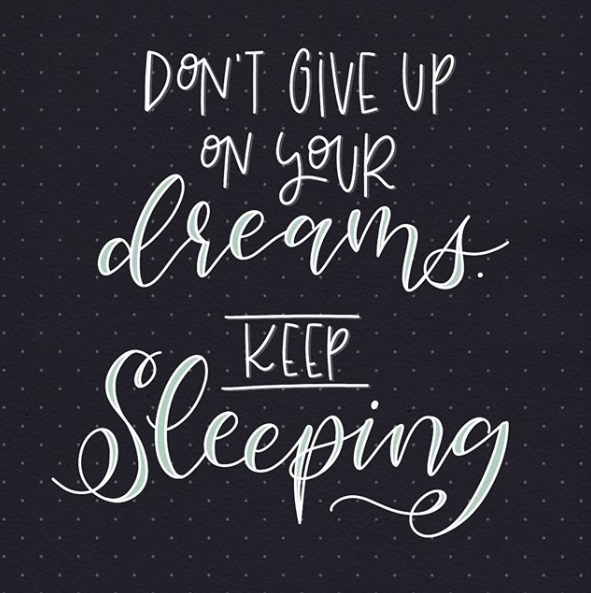 DON'T GIVE UP
ON YOUR
dreams.
KEEP
Sleeping